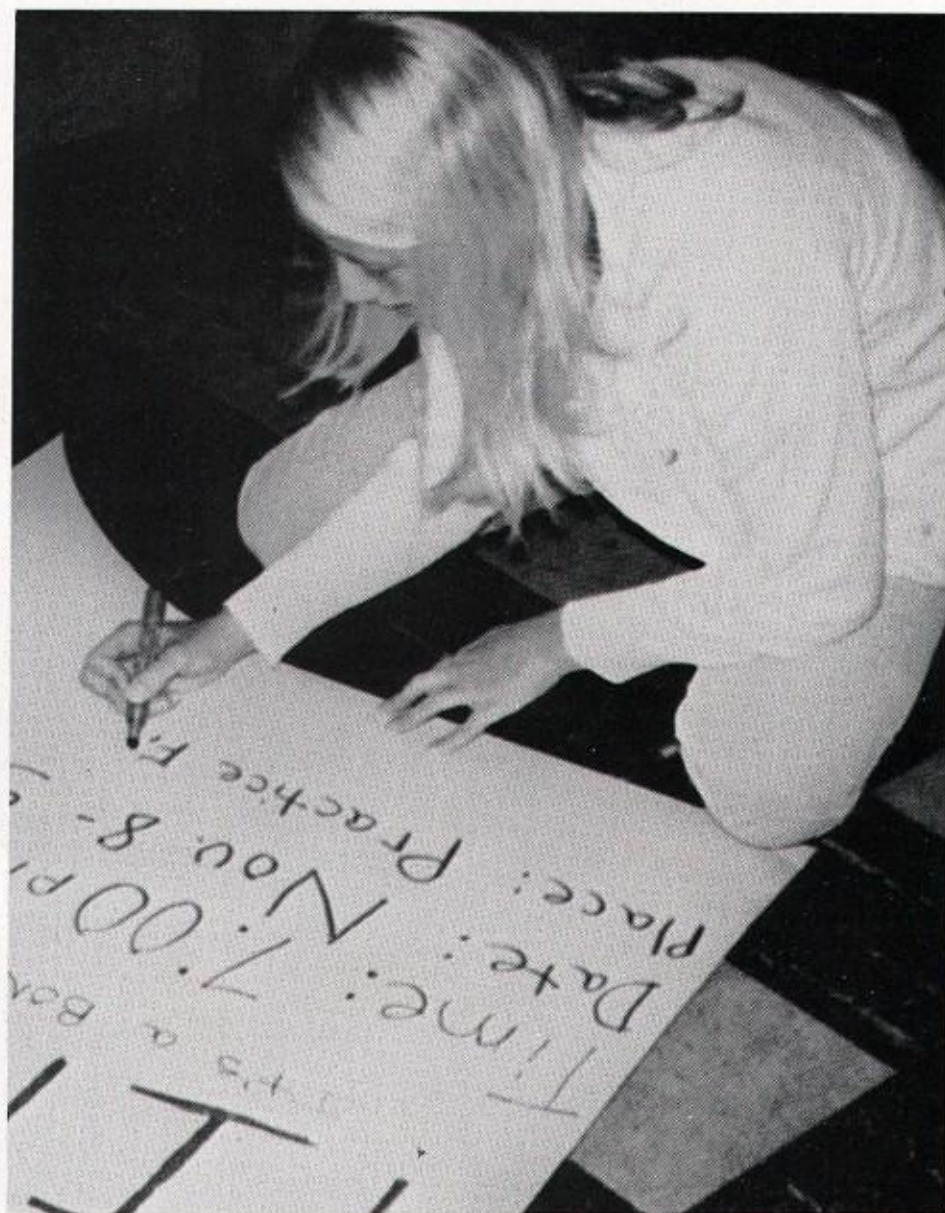 It's a Bon
Time: 7:00 P
Date: Nov. 8-
Place: Practice Fi